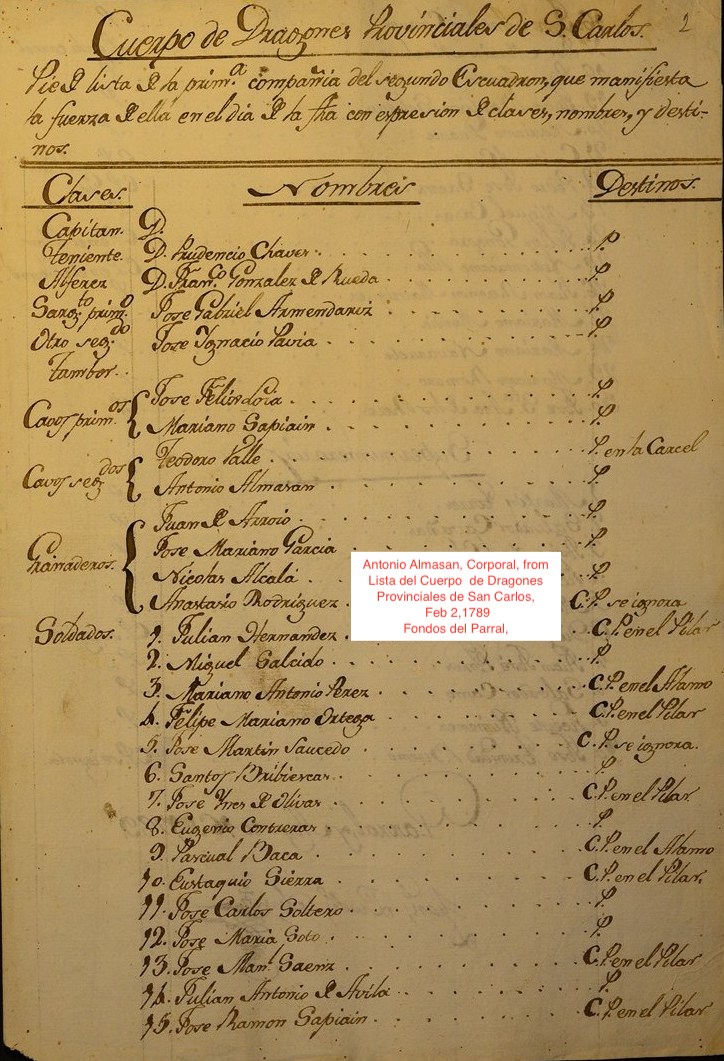 2
Cuerpo de Dragones Provinciales de S. Carlos.
Pie de lista de la prim.ª compañia del segundo Escuadron, que manifiesta
la fuerza de ella en el dia de la fha con expresion de clases, nombres, y desti-
nos.
Clases. Nombres Destinos.
Capitan. D.
Teniente. D. Prudencio Chaves. P.
Alferez D. Fran.co Gonzalez de Rueda P.
Sarg.to prim.o Jose Gabriel Armendariz P.
Otro seg.do Jose Ygnacio Pavia P.
Tambor.
Cavos prim.os Jose P.
Mariano Sapiain P.
Cavos seg.dos Teodoro Valle P. en la Carcel
Antonio Almasan P.
Granaderos. Juan de Arroio P.
Jose Mariano Garcia P.
Nicolas Alcalá P.
Anastasio Rodriguez C. P. se ignora
Soldados. 1. Julian Hernandez C. P. en el Pilar
2. Miguel Salcido P.
3. Mariano Antonio Perez C. P. en el Alamo
4. Felipe Mariano Ortega C. P. en el Pilar
5. Jose Martin Saucedo C. P. se ignora.
6. Santos Bribiescas P.
7. Jose Yves de Olivas C. P. en el Pilar
8. Eugenio Contreras P.
9. Pascual Baca C. P. en el Alamo
10. Eustaquio Sierra C. P. en el Pilar.
11. Jose Carlos Soltero P.
12. Jose Maria Soto P.
13. Jose Man.l Saenz C. P. en el Pilar
14. Julian Antonio de Avila P.
15. Jose Ramon Sapiain C. P. en el Pilar
Antonio Almasan, Corporal, from
Lista del Cuerpo de Dragones
Provinciales de San Carlos,
Feb 2,1789
Fondos del Parral,